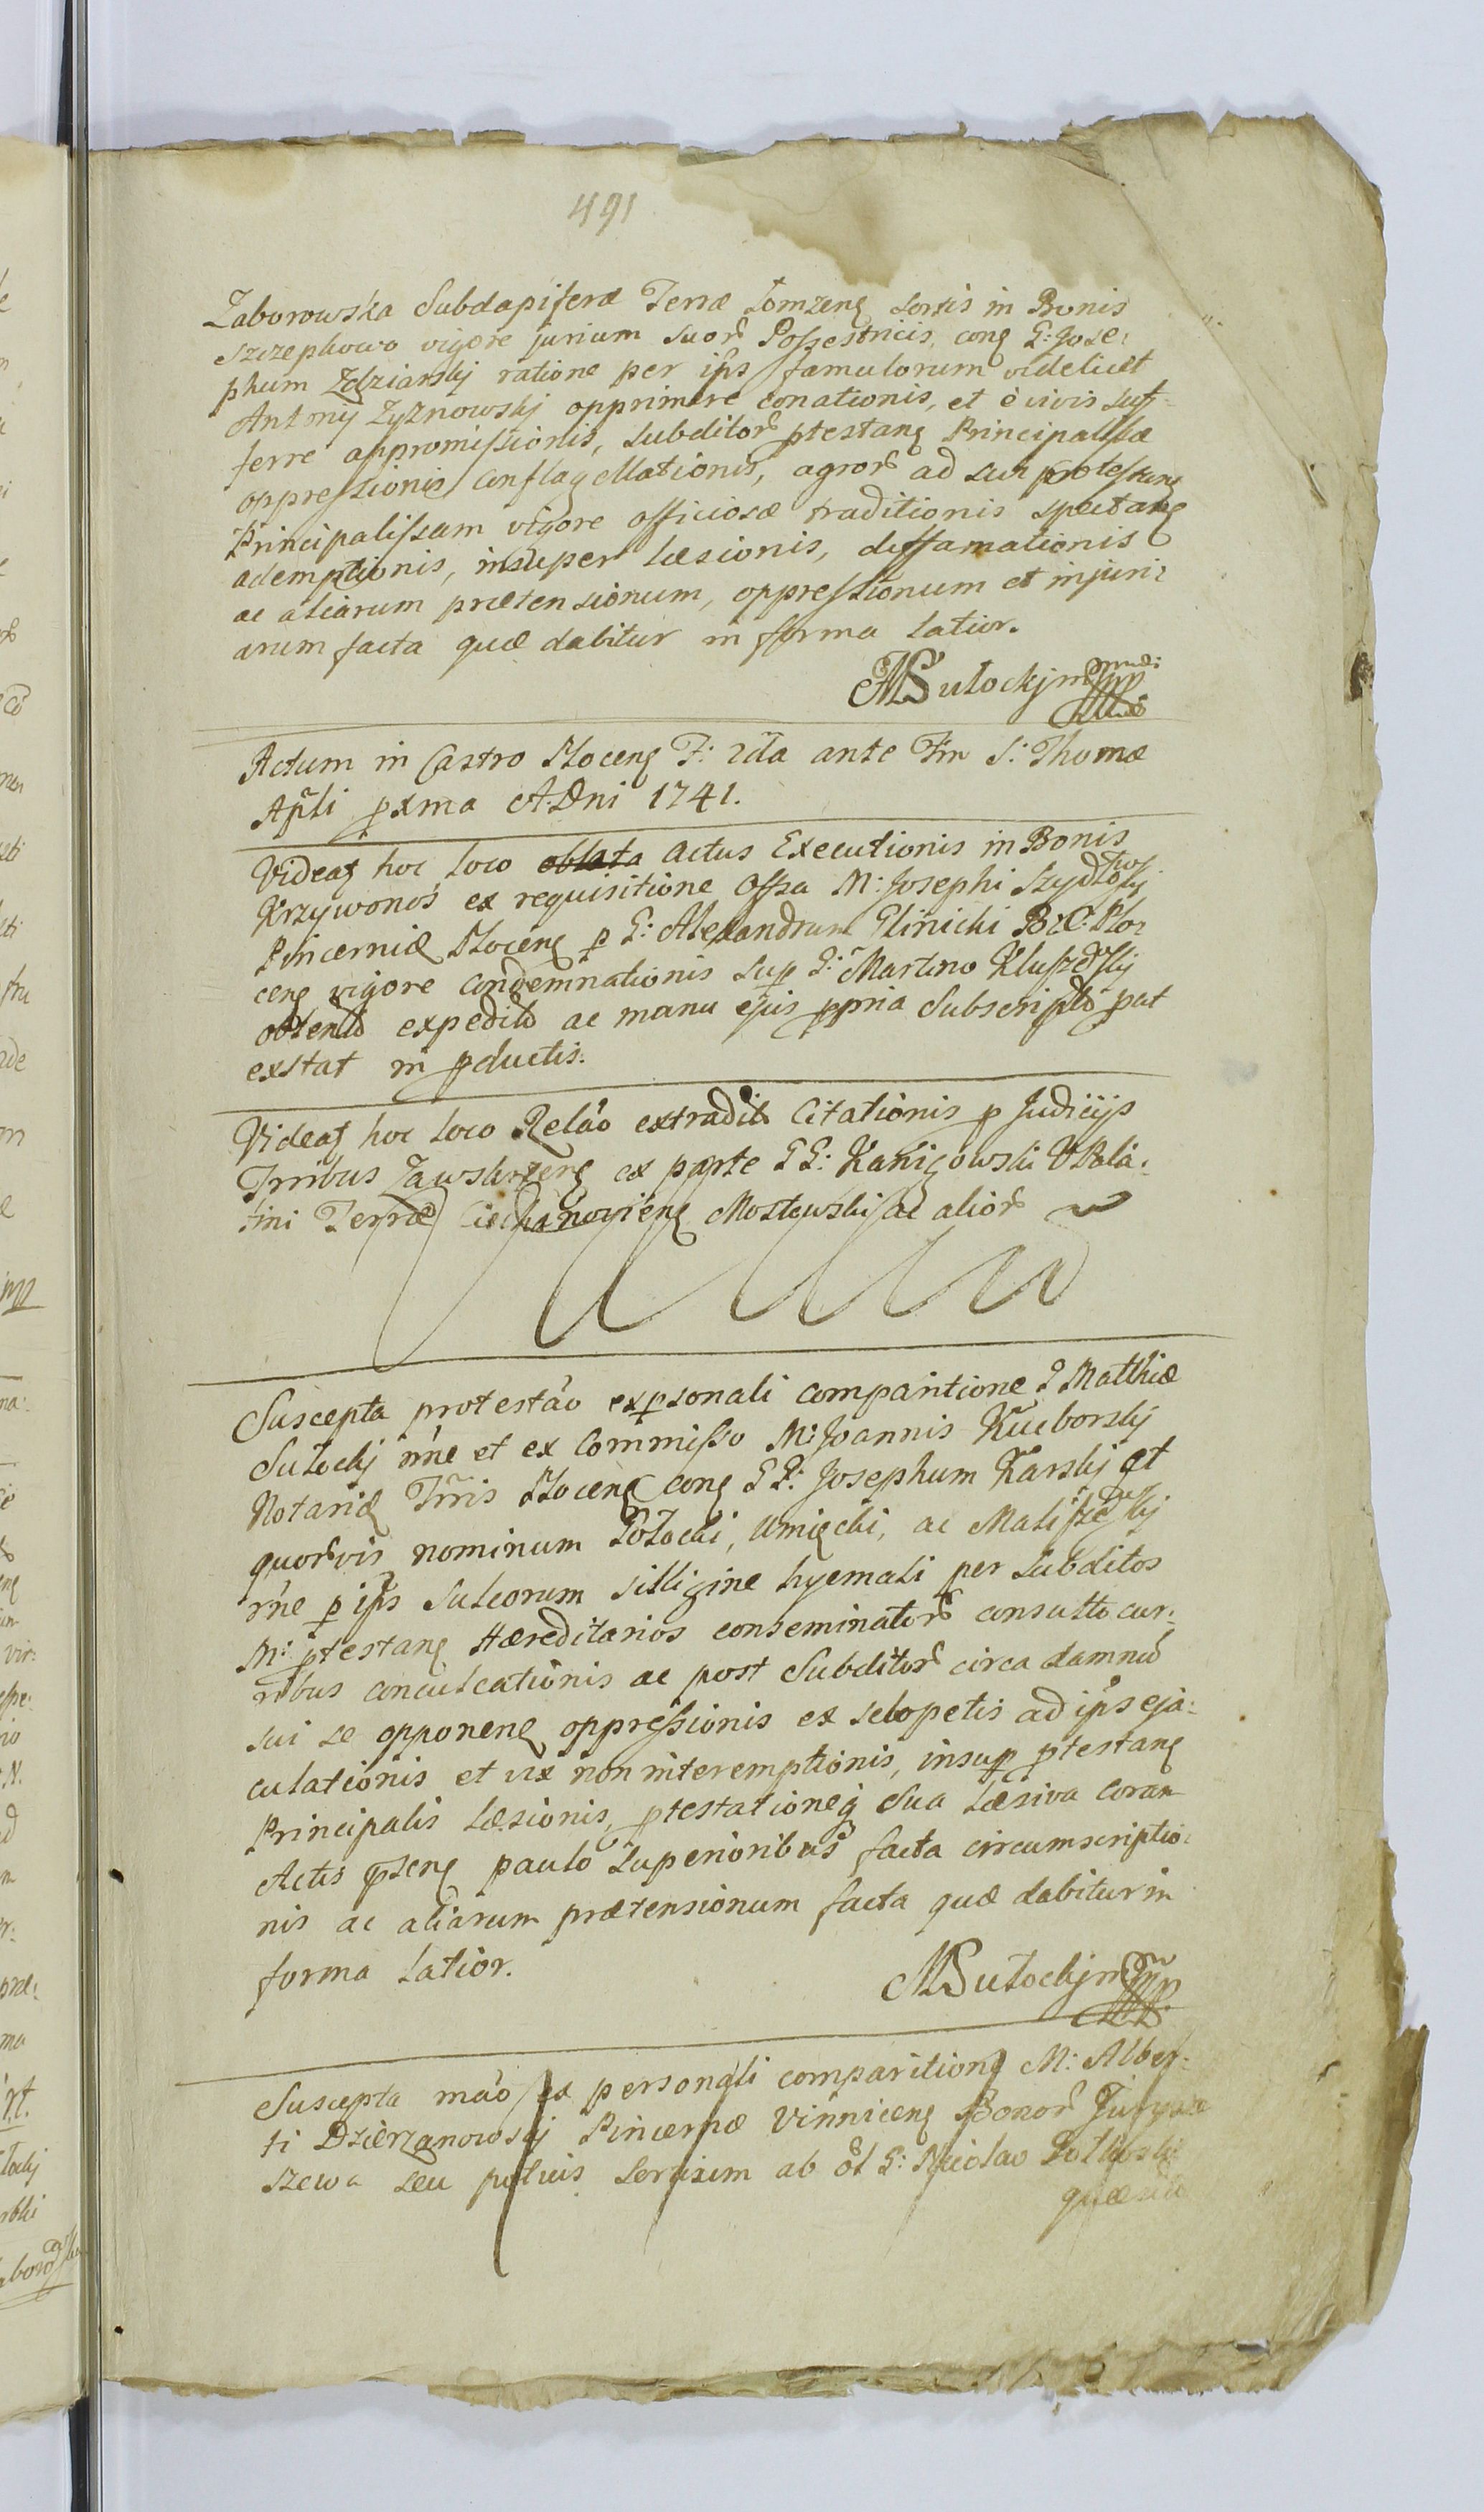 491
Zaborowska Subdapiferæ Terræ Łomzeng sortis in Bonis
Szczephowo vigore jurium suor Possestricis, cong G: Jose:
phum Zdziarskj ratione per ips famulorum videlicet
Antonij Zyznowskj opprimere conationis, et è vivis suf
ferre appromissionis, subditor ptestang Principalissæ
oppressionis conflagellationis, agror ad sui protestang
Principalissam vigore officiosæ traditionis spectang
ademptionis, insuper læsionis, diffamationis
ac aliarum prætensionum, oppressionum et injuri:
arum facta quæ dabitur in forma latior.
MSutockj
Actum in Castro Płoceng F: 2da ante Fm S: Thomæ
Apli pxma A. Dni 1741.
Videat hoc loco oblata Actus Executionis in Bonis
Krzywonoś ex requisitione Offa M: Josephi Szydłowskj
Pincerniæ Płoceng p G: Alexandrum Glinicki B: C: Plo:
ceng vigore condemnationis sup G: Martino
obtento expedito ac manu ejus ppria Subscripto put
exstat in pductis.
Videat hoc loco Relão extradit Citationis p Judicijs
Trribus Zawskrzeng ex parte GG: Kanigowski V Pala:
tini Terræ Ciechanovieng Mostowski ac alior
Suscepta protestão ex psonali comparitione G Matthiæ
Sutockj nne et ex Commisso M: Joannis Kucborskj
Notarid Trris Płoceng cong GG: Josephum Karskj et
quorvis nominum Potocki, Umięcki, ac
rne p ips sulcorum silligine hyemali per subditos
M: ptestang Hæreditarios conseminator consulto cur:
ribus conculcationis ac post Subditor circa damnu
sui se opponeng oppressionis ex sclopetis ad ips eja:
culationis et vix non interemptionis, insup ptestang
Principalis læsionis, ptestationeq sua læsiva coram
Actis pseng paulo superioribus facta circumscriptio:
nis ac aliarum prætensionum facta quæ dabitur in
forma latior.
MSutockj
Suscepta mão ex personali comparitione M: Alber:
ti Dzierzanowskj Pincernæ Vinniceng Bonor
szewa seu potius sortium ab ol G: Nicolao